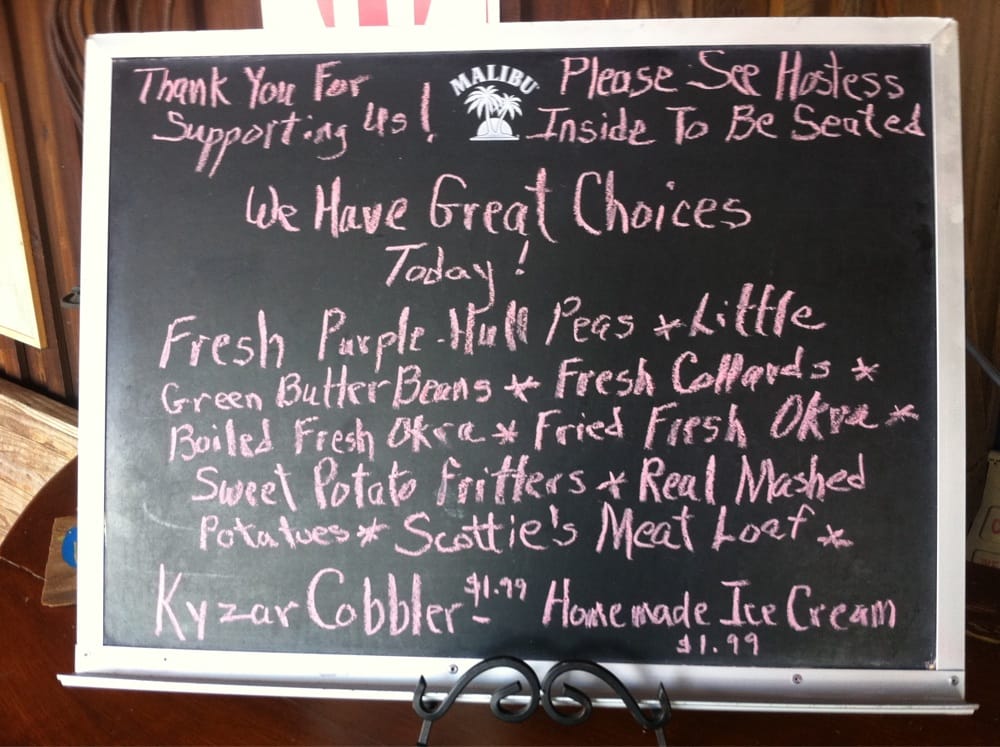 Thank You For
Supporting Us!
MALIBU
Please See Hostess
Inside To Be Seated
We Have Great Choices
Today!
Fresh Purple-Hull Peas * Little
Green Butter Beans * Fresh Collards *
Boiled Fresh Okra * Fried Fresh Okra *
Sweet Potato Fritters * Real Mashed
Potatoes * Scottie's Meat Loaf *
Kyzar Cobbler - $1.99 Homemade Ice Cream
$1.99